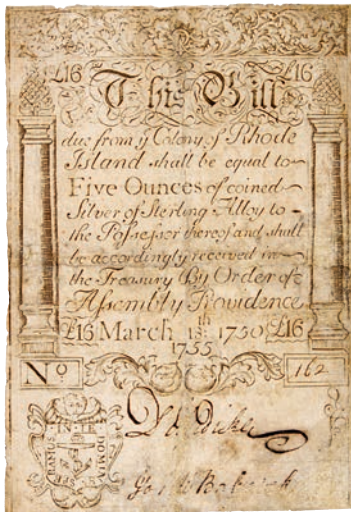 £16 £16
This Bill
due from y Colony of Rhode
Island shall be equal to
Five Ounces of coined
Silver of Sterling Alloy to
the Possessor thereof and shall
be accordingly received in
the Treasury By Order of
Assembly Providence
£16 March 18th 1750 £16
1755
No 162
IN TE DOMINE
SPERAMUS